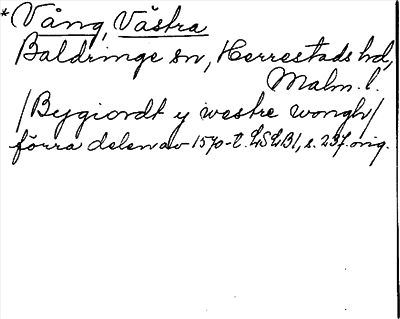 * Vång, Västra
Baldringe sn, Herrestads hd,
Malm. l.
/Bygiordt y westre wongh/
förra delen av 1570-t. LSLB1, s. 237. orig.